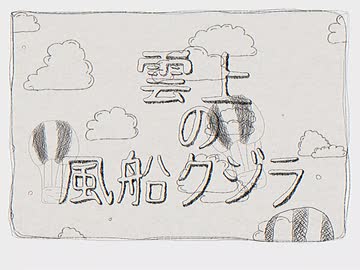 雲上
の
風船クジラ